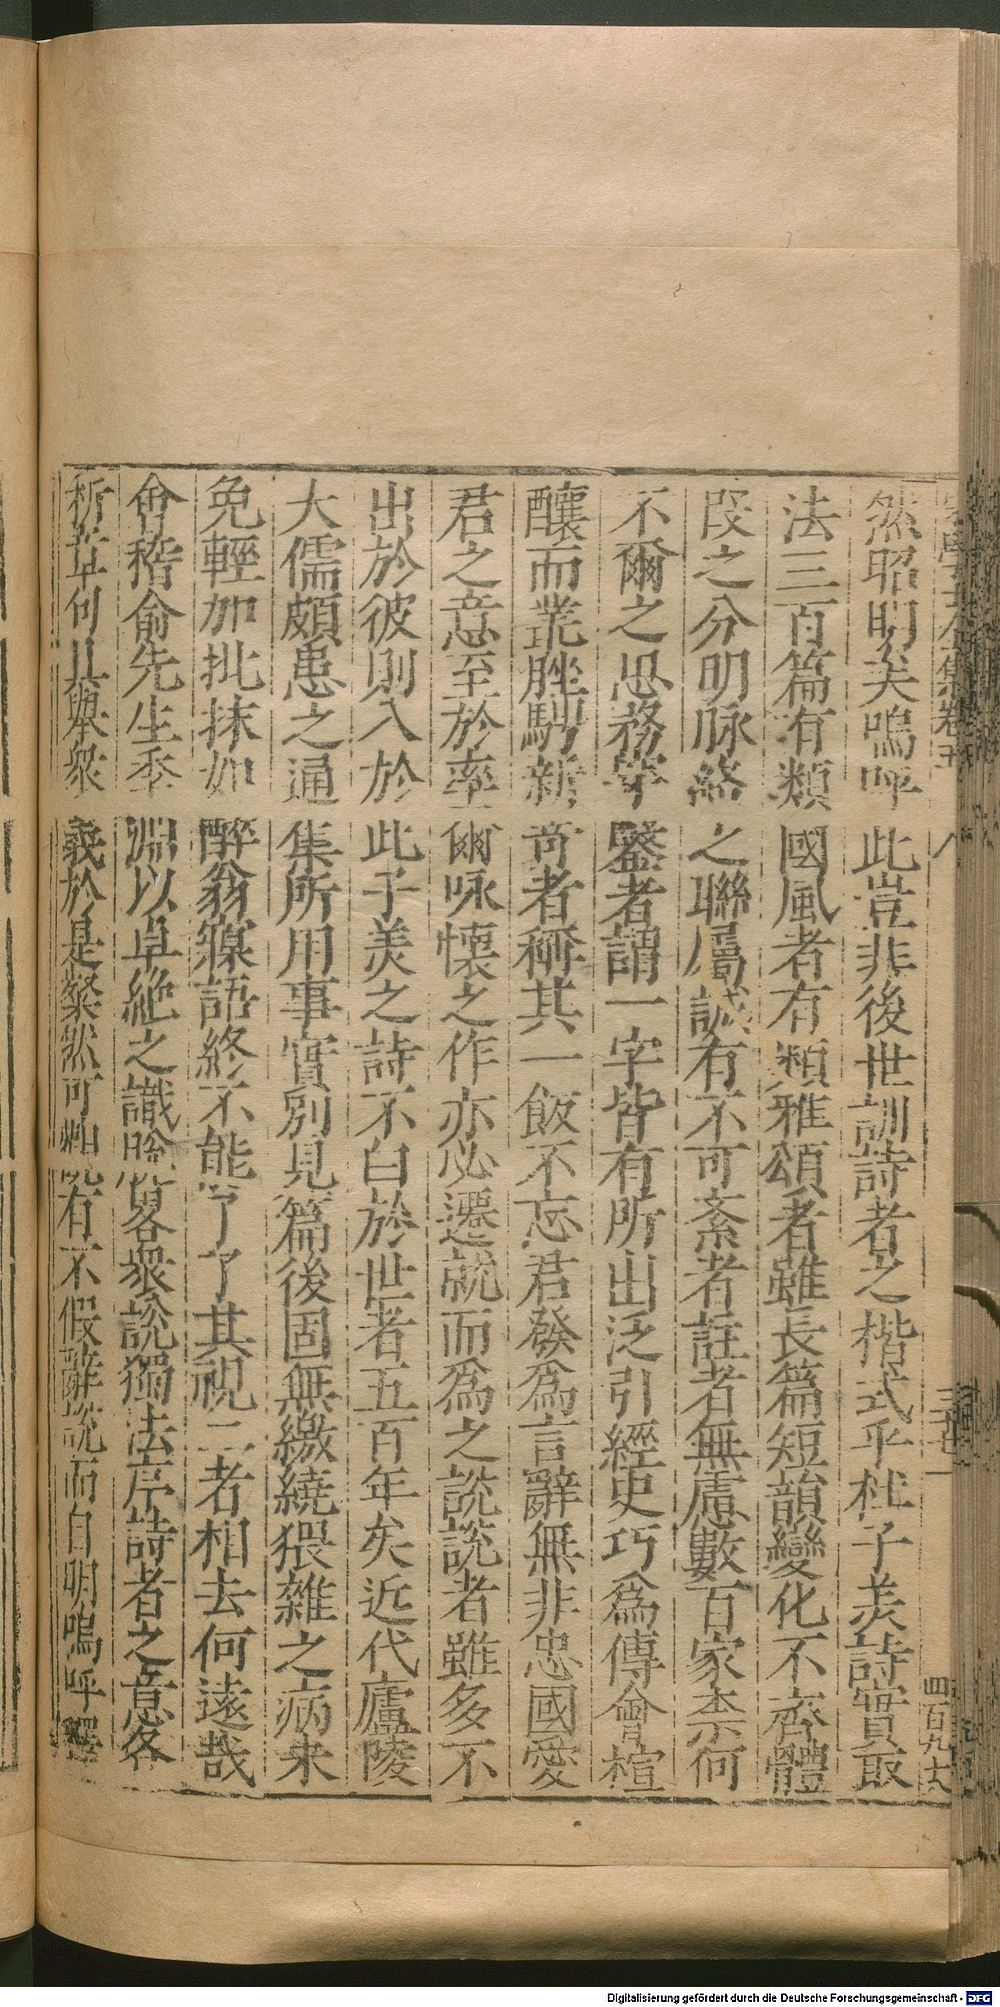 然昭明矣嗚呼此豈非後世訓詩者之楷式乎杜子羙詩實取
法三百篇有類國風者有類雅頌者雖長篇短韻變化不齊體
段之分明脉絡之聯屬誠有不可紊者註者無慮數百家柰何
不爾之思務穿鑿者謂一字皆有所出泛引經史巧爲傅會楦
釀而叢脞騁新竒者稱其一飯不忘君發爲言辭無非忠國愛
君之意至於率爾咏懷之作亦必遷就而爲之說說者雖多不
出於彼則入於此子羙之詩不白於世者五百年矣近代廬陵
大儒頗患之通集所用事實別見篇後固無繳繞猥雜之病未
免輕加批抹如醉翁寱語終不能了了其視二者相去何遠哉
會稽俞先生季淵以卓絶之識脫畧衆說獨法序詩者之意各
析章句具舉衆義於是粲然可觀有不假辭說而自明嗚呼釋
集卷五
四百九十六
Digitalisierung gefördert durch die Deutsche Forschungsgemeinschaft - DFG